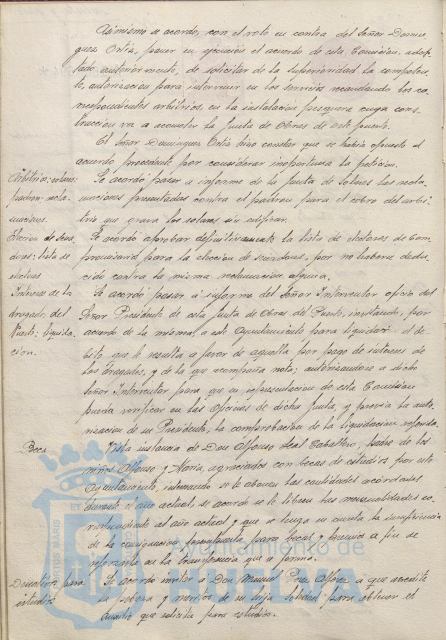 Asimismo se acordó, con el voto en contra del Señor Domín-
guez Ortiz, poner en ejecución el acuerdo de esta Comisión, adop-
tado anteriormente, de solicitar de la superioridad la competen-
te autorización para intervenir en los servicios recaudando los co-
rrespondientes arbitrios, en la instalación pesquera cuya cons-
trucción va a acometer la Junta de Obras de este puerto.
El Señor Domínguez Ortiz hizo constar que se había opuesto al
acuerdo precedente por considerar inoportuna la petición.
Arbitrios: solares:
padrón: recla-
maciones.
Se acordó pasar a informe de la Junta de Solares las recla-
maciones presentadas contra el padrón para el cobro del arbi-
trio que grava los solares sin edificar.
Elección de Sena-
dores: lista de
electores
Se acordó aprobar definitivamente la lista de electores de Com-
promisarios para la elección de Senadores, por no haberse dedu-
cido contra la misma reclamación alguna.
Intereses de los
dragados del
Puerto: liquida-
ción.
Se acordó pasar a informe del Señor Interventor oficio del
Señor Presidente de esta Junta de Obras del Puerto, invitando, por
acuerdo de la misma, a este Ayuntamiento para liquidar el de-
bito que le resulta a favor de aquella por pago de intereses de
los dragados, y de la que acompaña nota; autorizándose a dicho
Señor Interventor para que en representación de esta Comisión
pueda verificar en las Oficinas de dicha Junta, y previa la auto-
rización de su Presidente, la comprobación de la liquidación referida.
Beca
Vista instancia de Don Alfonso Leal Caballero, padre de los
niños Alfonso y María, agraciados con becas de estudios por este
Ayuntamiento, interesando se le abonen las cantidades acordadas
durante el año actual, se acordó se le libren las mensualidades co-
rrespondientes al año actual y que se tenga en cuenta la insuficiencia
de la consignación presupuesta para becas y premios a fin de
reforzarla en la transferencia que se forme.
para
estudios
Se acordó invitar a Don Manuel a que acredite
la pobreza y méritos de su hija para obtener el
que solicita para estudios.
Ayuntamiento de
HUELVA
PORTUS MARIS ET